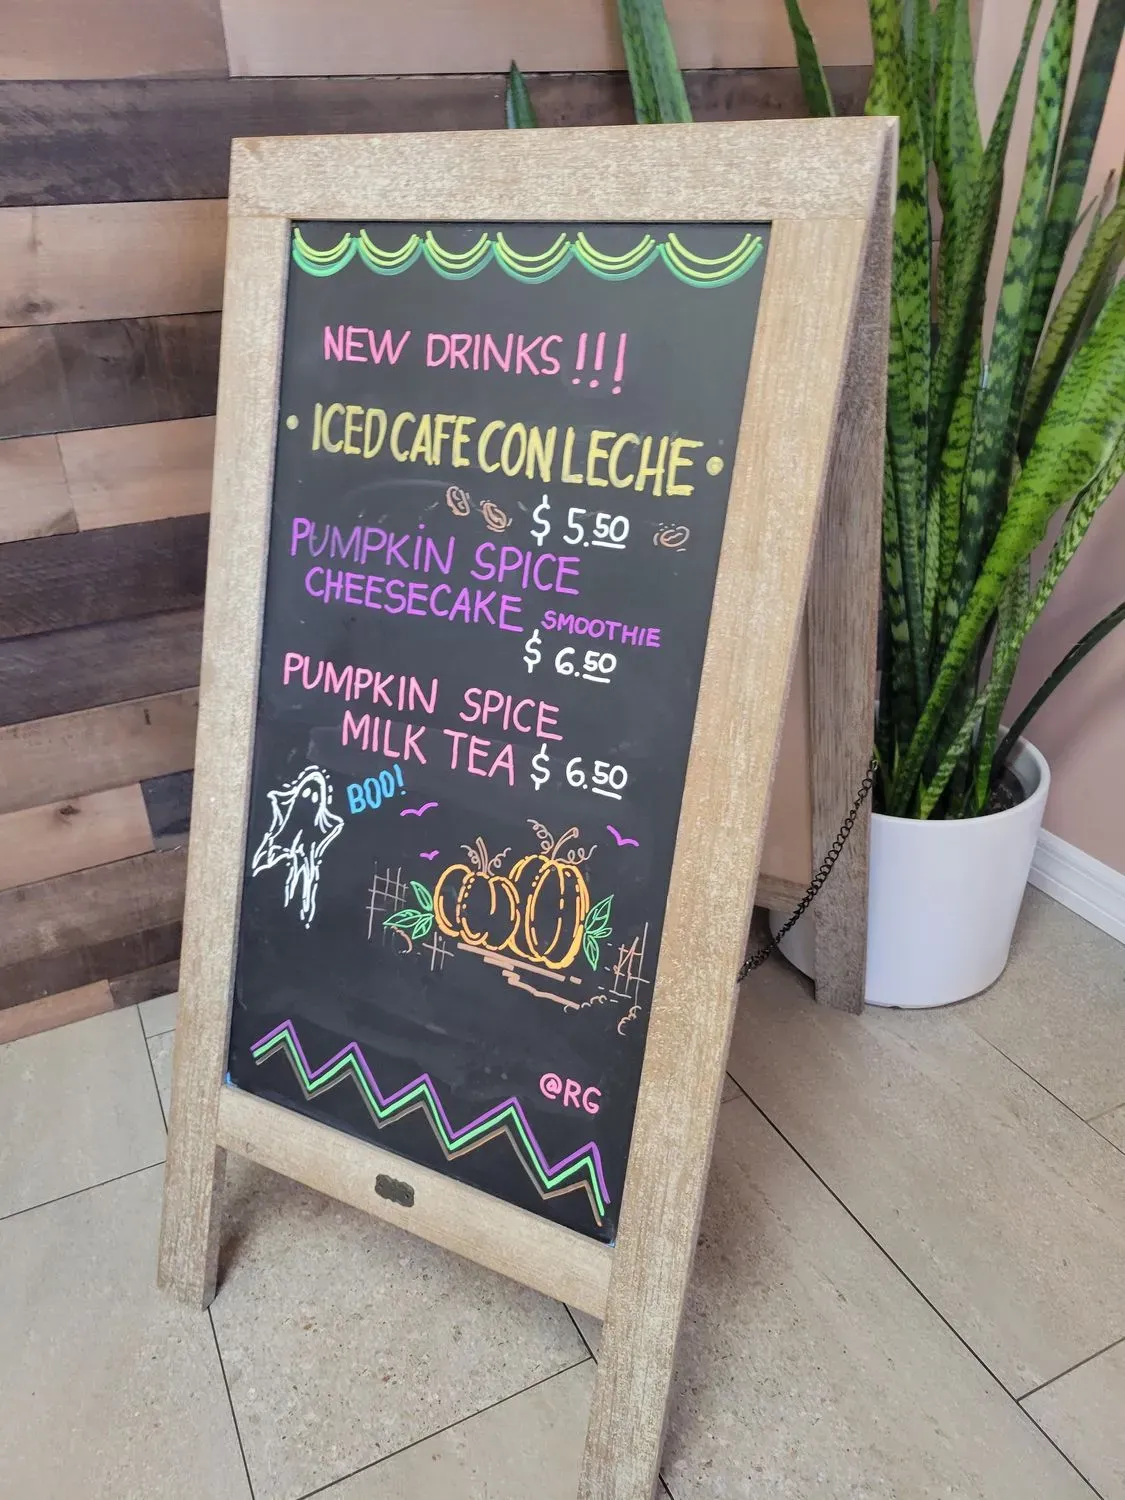 NEW DRINKS!!!
• ICED CAFE CON LECHE •
$5.50
PUMPKIN SPICE
CHEESECAKE SMOOTHIE
$6.50
PUMPKIN SPICE
MILK TEA $6.50
BOO!
@RG